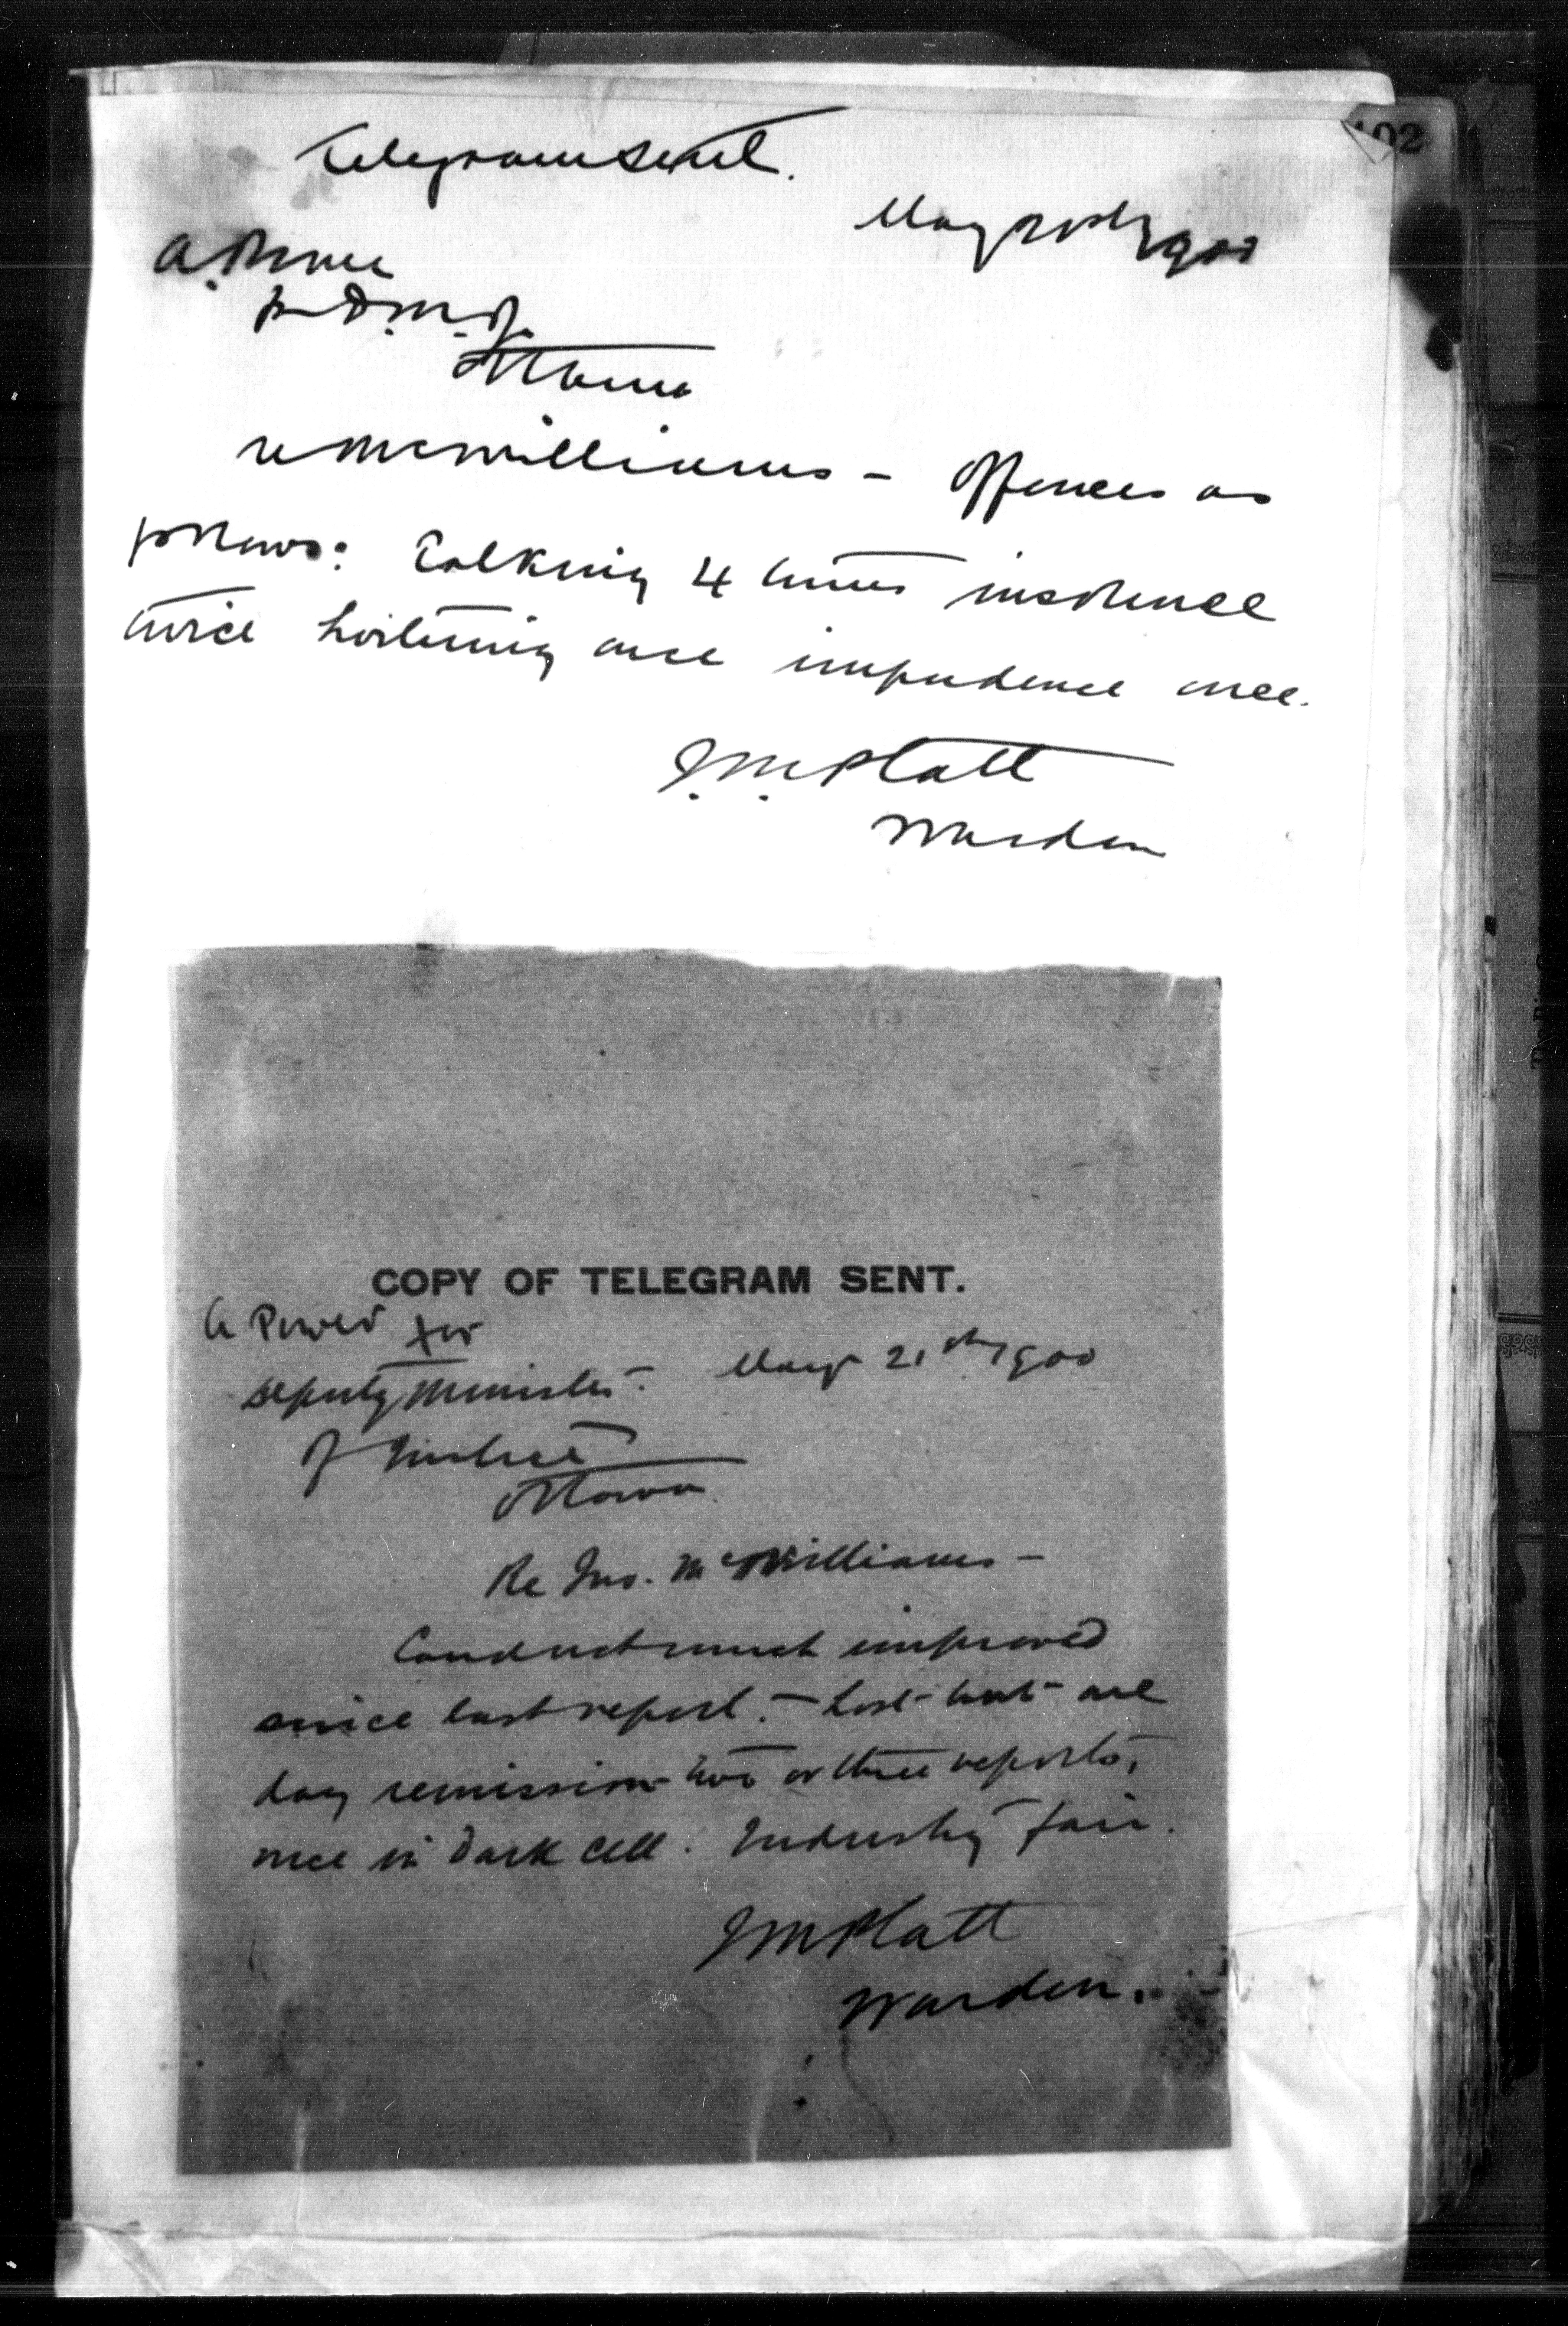 102
Telegram sent.
May 1900
A. Power
for D.M.J.
Ottawa
re McWilliams - Offences as
follows: Talking 4 times insolence
twice loitering once impudence once.
J.M. Platt
Warden
COPY OF TELEGRAM SENT.
A Power for
Deputy Minister May 21st 1900
of Justice
Ottawa
Re Jno. McWilliams -
Conduct much improved
since last report. - Lost but one
day remission two or three reports,
once in dark cell. Industry fair.
J M Platt
Warden.